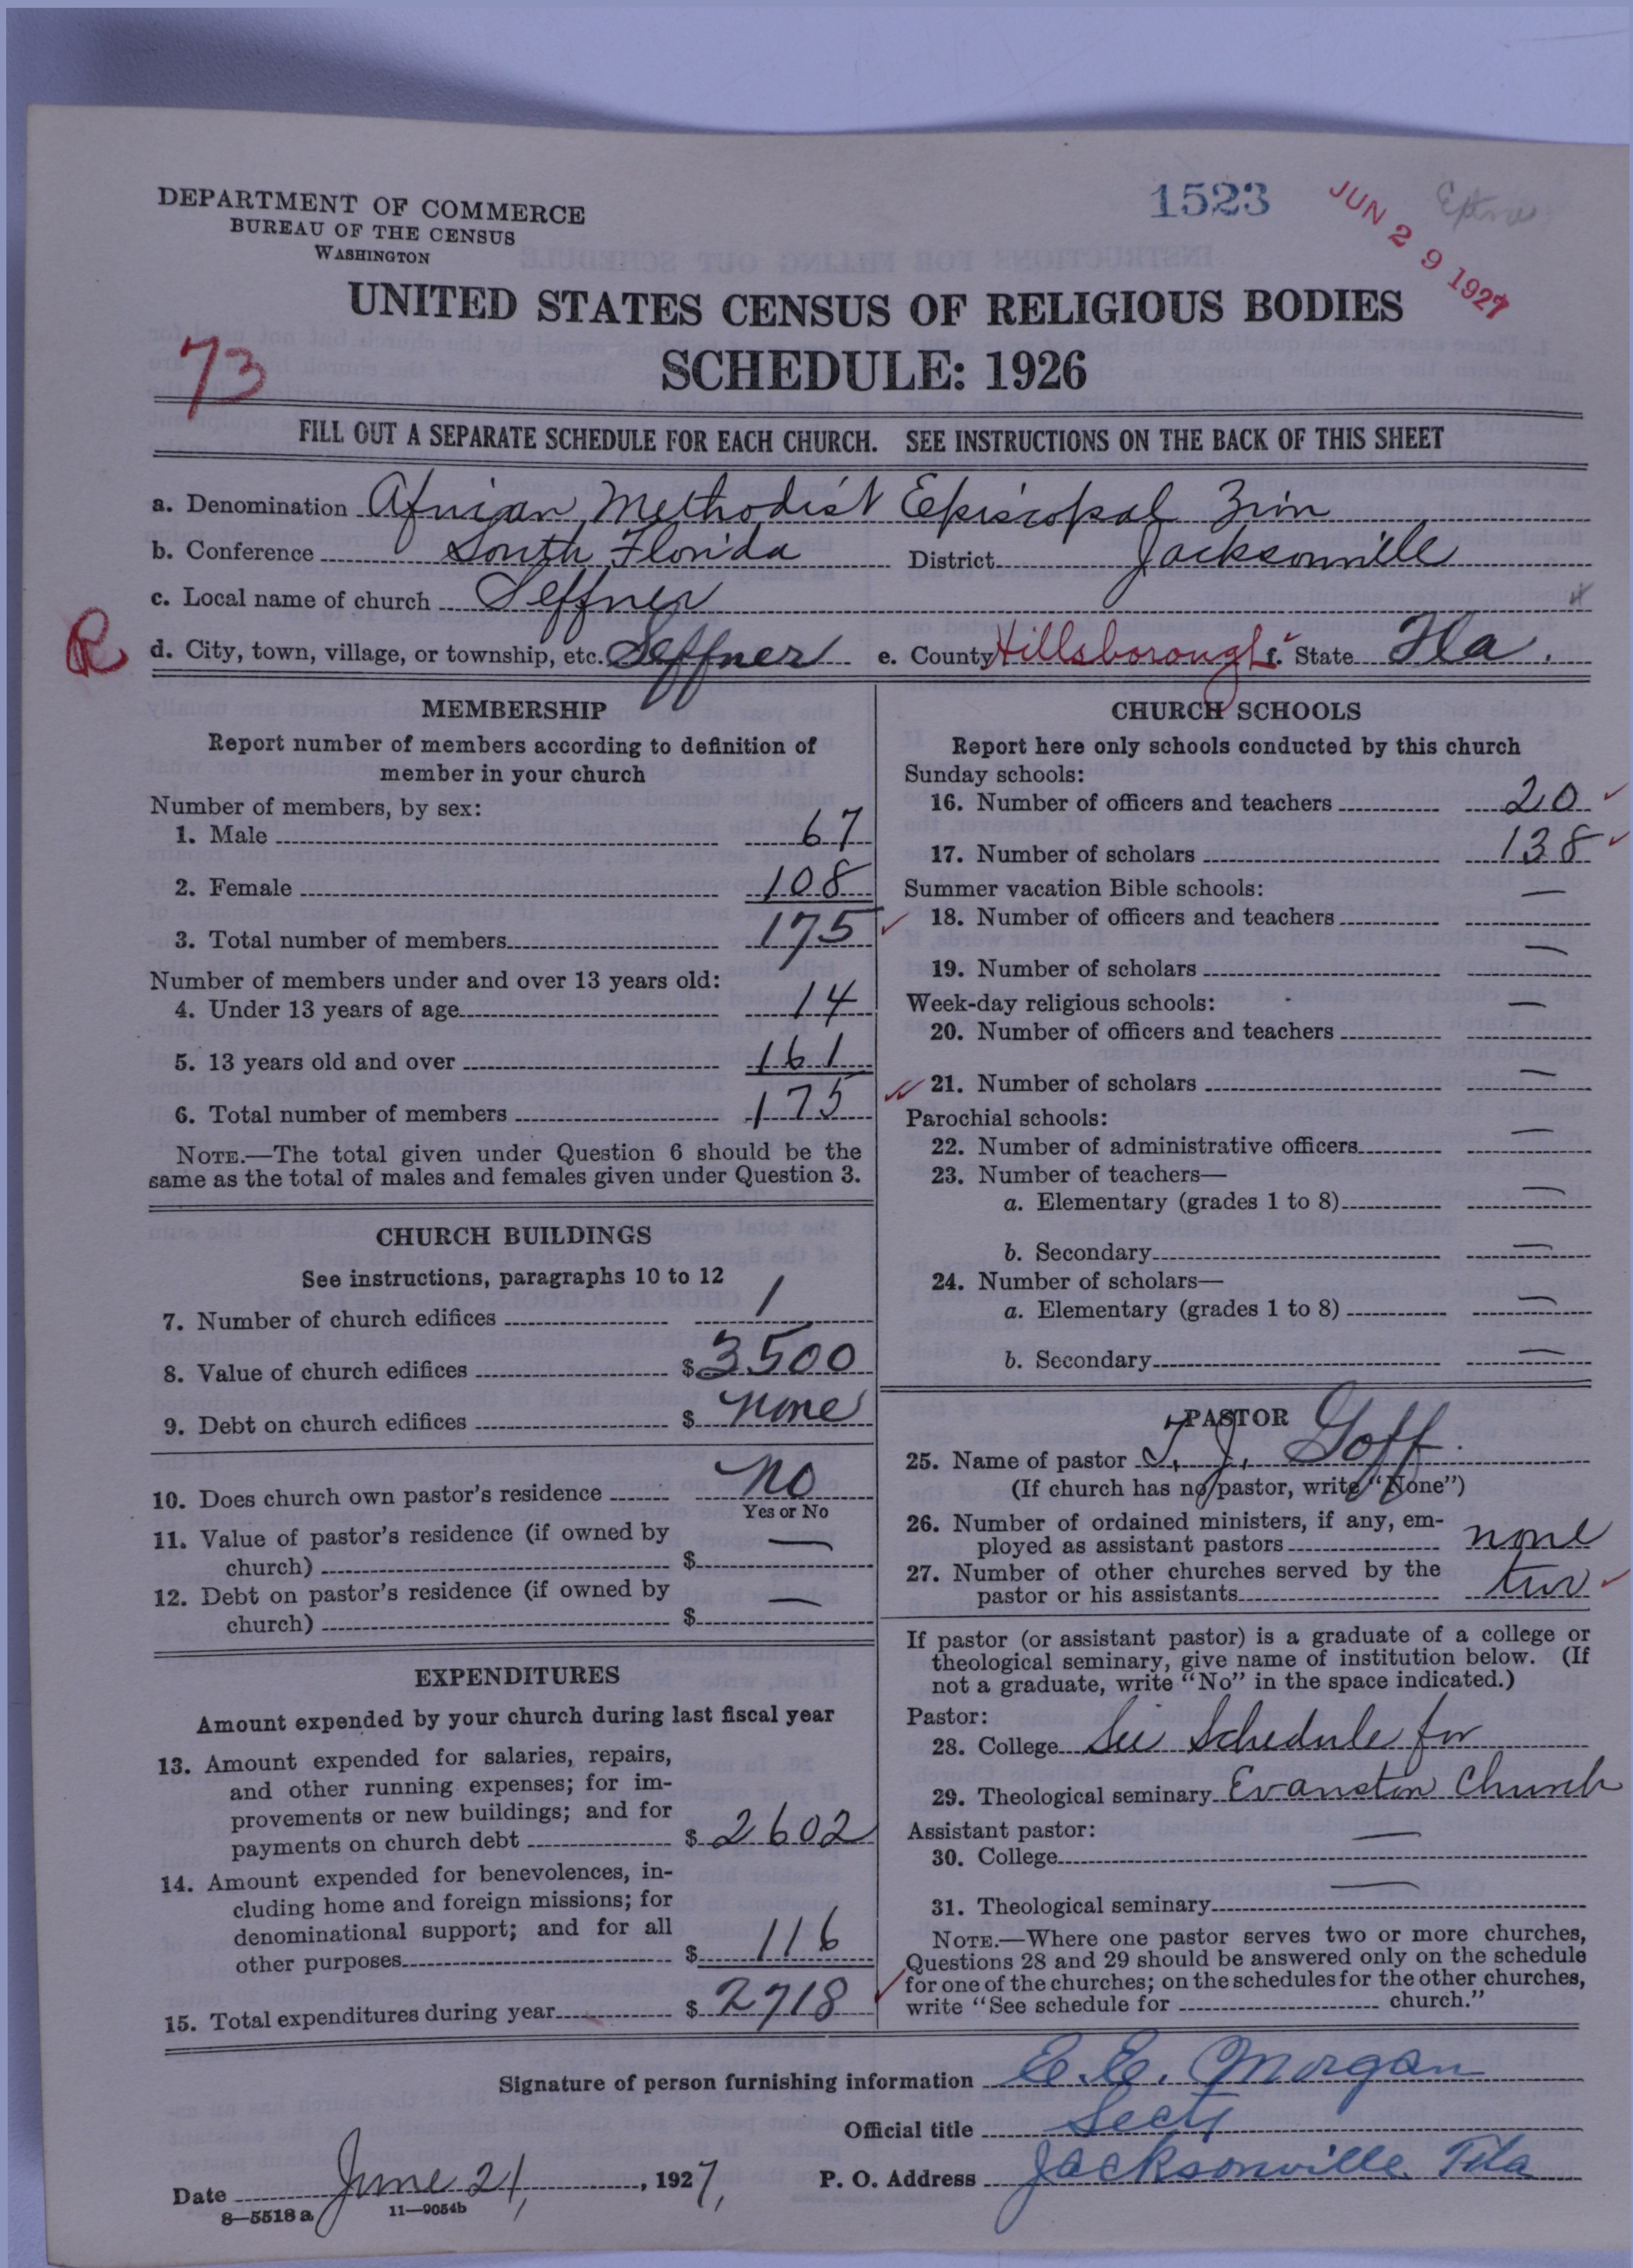 1523
JUN 29 1927
DEPARTMENT OF COMMERCE
BUREAU OF THE CENSUS
WASHINGTON
UNITED STATES CENSUS OF RELIGIOUS BODIES
73
SCHEDULE: 1926
FILL OUT A SEPARATE SCHEDULE FOR EACH CHURCH. SEE INSTRUCTIONS ON THE BACK OF THIS SHEET
a. Denomination African Methodist Episcopal Zion
b. Conference South Florida District Jacksonville
c. Local name of church Seffner
R d. City, town, village, or township, etc. Seffner e. County Hillsborough f. State Fla.
MEMBERSHIP
Report number of members according to definition of
member in your church
Number of members, by sex:
1. Male 67
2. Female 108
3. Total number of members 175
Number of members under and over 13 years old:
4. Under 13 years of age 14
5. 13 years old and over 161
6. Total number of members 175
NOTE.—The total given under Question 6 should be the
same as the total of males and females given under Question 3.
CHURCH BUILDINGS
See instructions, paragraphs 10 to 12
7. Number of church edifices 1
8. Value of church edifices $ 3500
9. Debt on church edifices $ none
10. Does church own pastor's residence No
Yes or No
11. Value of pastor's residence (if owned by
church) $ —
12. Debt on pastor's residence (if owned by
church) $ —
EXPENDITURES
Amount expended by your church during last fiscal year
13. Amount expended for salaries, repairs,
and other running expenses; for im-
provements or new buildings; and for
payments on church debt $ 2602
14. Amount expended for benevolences, in-
cluding home and foreign missions; for
denominational support; and for all
other purposes $ 116
15. Total expenditures during year $ 2718
CHURCH SCHOOLS
Report here only schools conducted by this church
Sunday schools:
16. Number of officers and teachers 20
17. Number of scholars 138
Summer vacation Bible schools:
18. Number of officers and teachers —
19. Number of scholars —
Week-day religious schools:
20. Number of officers and teachers —
21. Number of scholars —
Parochial schools:
22. Number of administrative officers —
23. Number of teachers—
a. Elementary (grades 1 to 8) —
b. Secondary —
24. Number of scholars—
a. Elementary (grades 1 to 8) —
b. Secondary —
PASTOR
25. Name of pastor T. J. Goff
(If church has no pastor, write "None")
26. Number of ordained ministers, if any, em-
ployed as assistant pastors none
27. Number of other churches served by the
pastor or his assistants two
If pastor (or assistant pastor) is a graduate of a college or
theological seminary, give name of institution below. (If
not a graduate, write "No" in the space indicated.)
Pastor:
28. College See Schedule for
29. Theological seminary Evanston Church
Assistant pastor:
30. College —
31. Theological seminary —
NOTE.—Where one pastor serves two or more churches,
Questions 28 and 29 should be answered only on the schedule
for one of the churches; on the schedules for the other churches,
write "See schedule for church."
Signature of person furnishing information E. E. Morgan
Official title Secty
Date June 21, 1927, P. O. Address Jacksonville Fla
8—5518 a 11—9054b